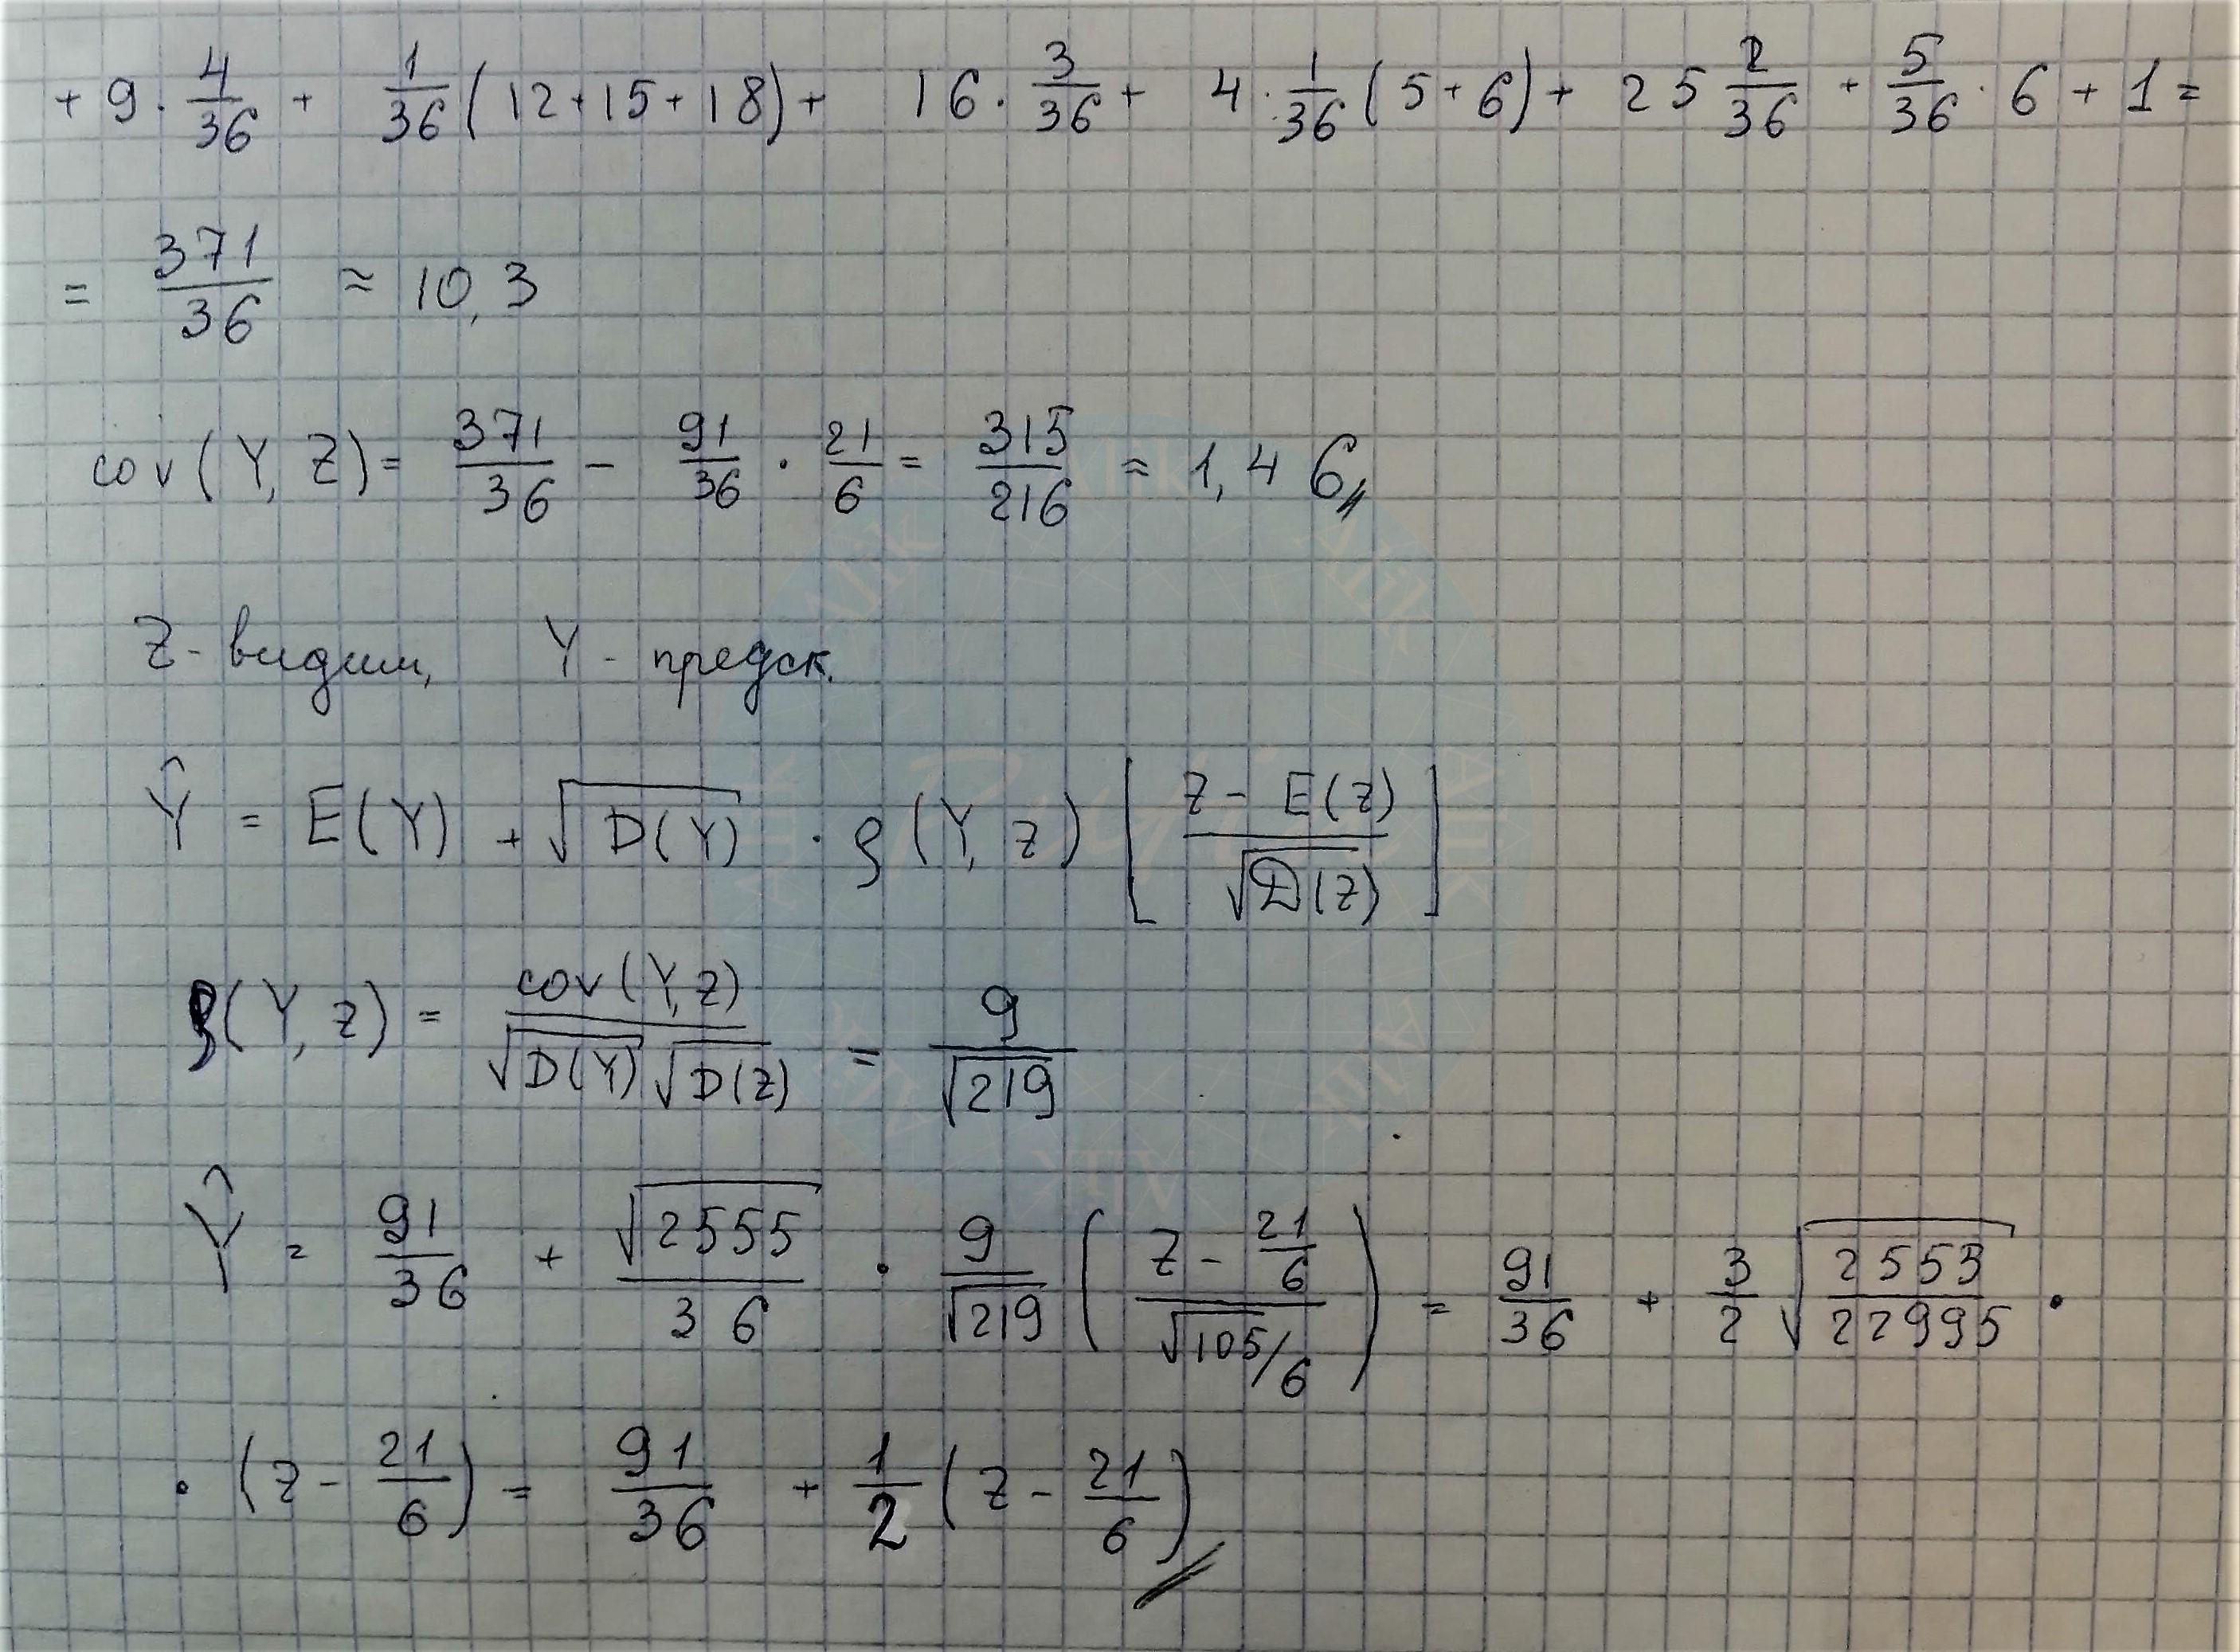 + 9 · 4/36 + 1/36 (12+15+18) + 16 · 3/36 + 4 · 1/36 (5+6) + 25 2/36 + 5/36 · 6 + 1 =
= 371/36 ≈ 10,3
cov(Y, Z) = 371/36 − 91/36 · 21/6 = 315/216 ≈ 1,46
Z - видим, Y - предск.
Ŷ = E(Y) + √D(Y) · ρ(Y, z) [(z − E(z))/√D(z)]
ρ(Y, z) = cov(Y, z)/(√D(Y) √D(z)) = 9/√219
Ŷ = 91/36 + √2555/36 · 9/√219 ((z − 21/6)/(√105/6)) = 91/36 + 3/2 √(2553/22995) ·
· (z − 21/6) = 91/36 + 1/2 (z − 21/6)
Alik
Alik
Alik
Alik
Alik
Alik